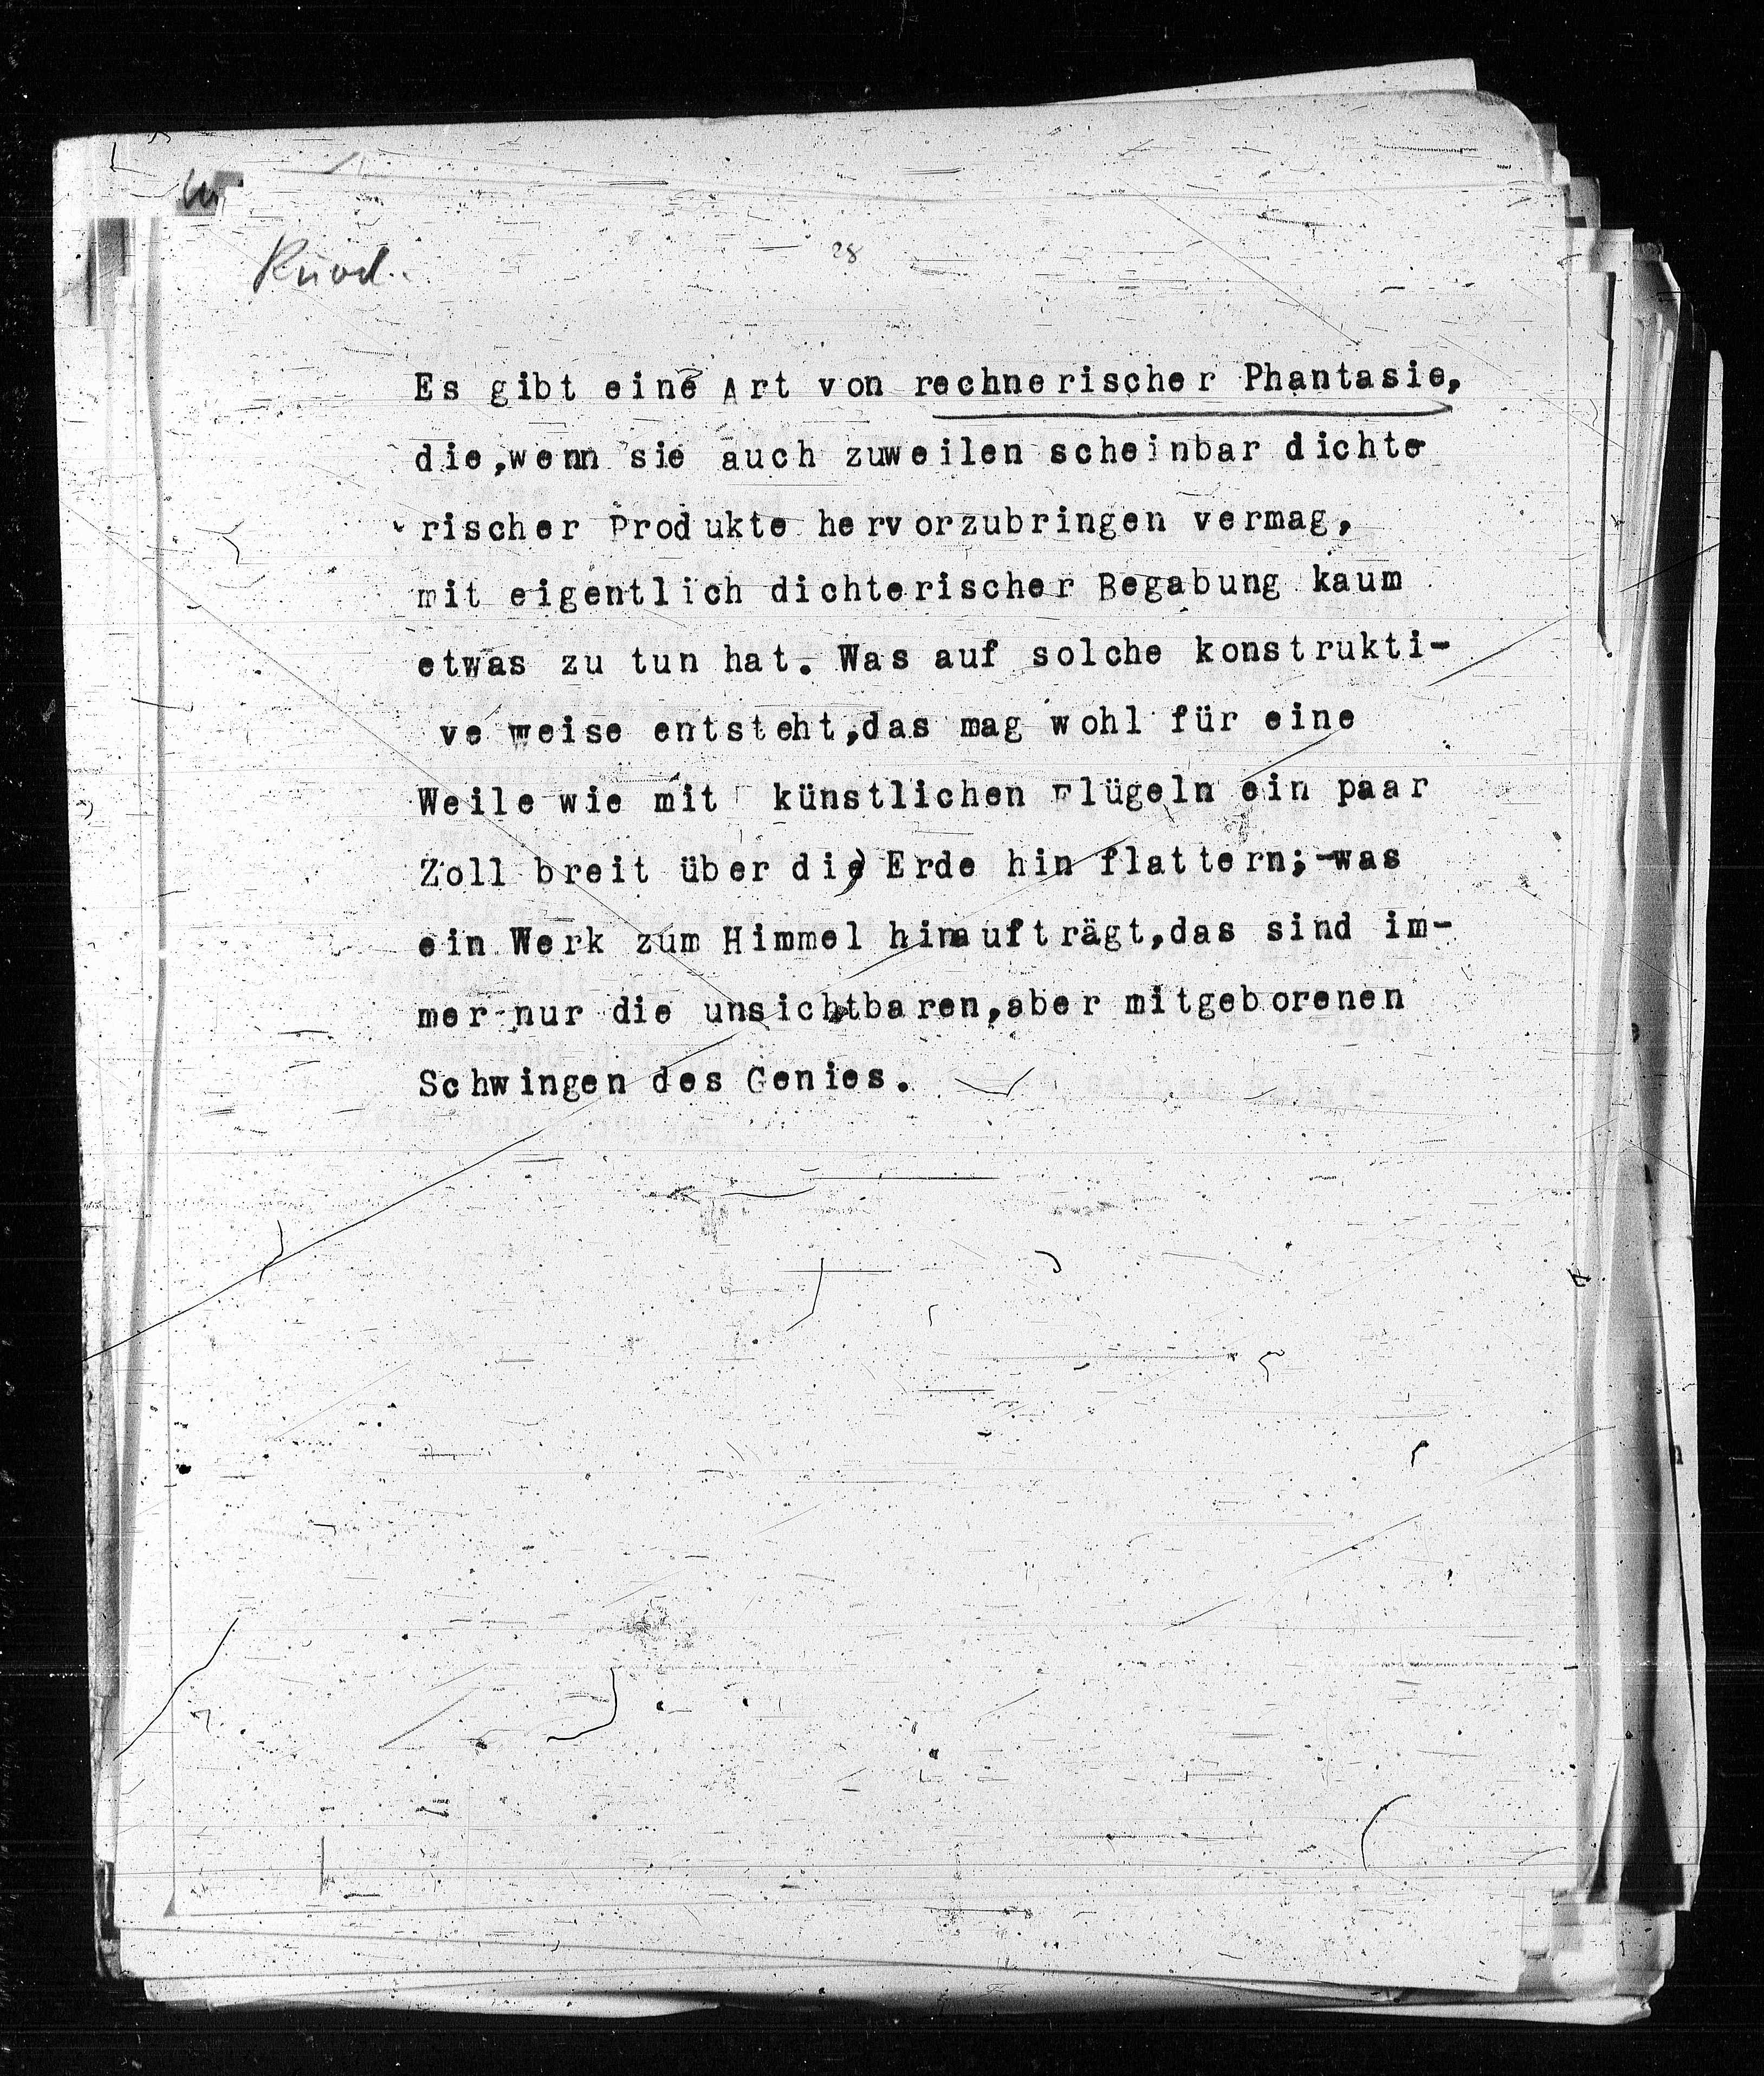 28
Es gibt eine Art von rechnerischer Phantasie,
die,wenn sie auch zuweilen scheinbar dichte
rischer Produkte hervorzubringen vermag,
mit eigentlich dichterischer Begabung kaum
etwas zu tun hat. Was auf solche konstrukti-
ve weise entsteht,das mag wohl für eine
Weile wie mit künstlichen Flügeln ein paar
Zoll breit über die Erde hin flattern;-was
ein Werk zum Himmel hinaufträgt,das sind im-
mer nur die unsichtbaren,aber mitgeborenen
Schwingen des Genies.